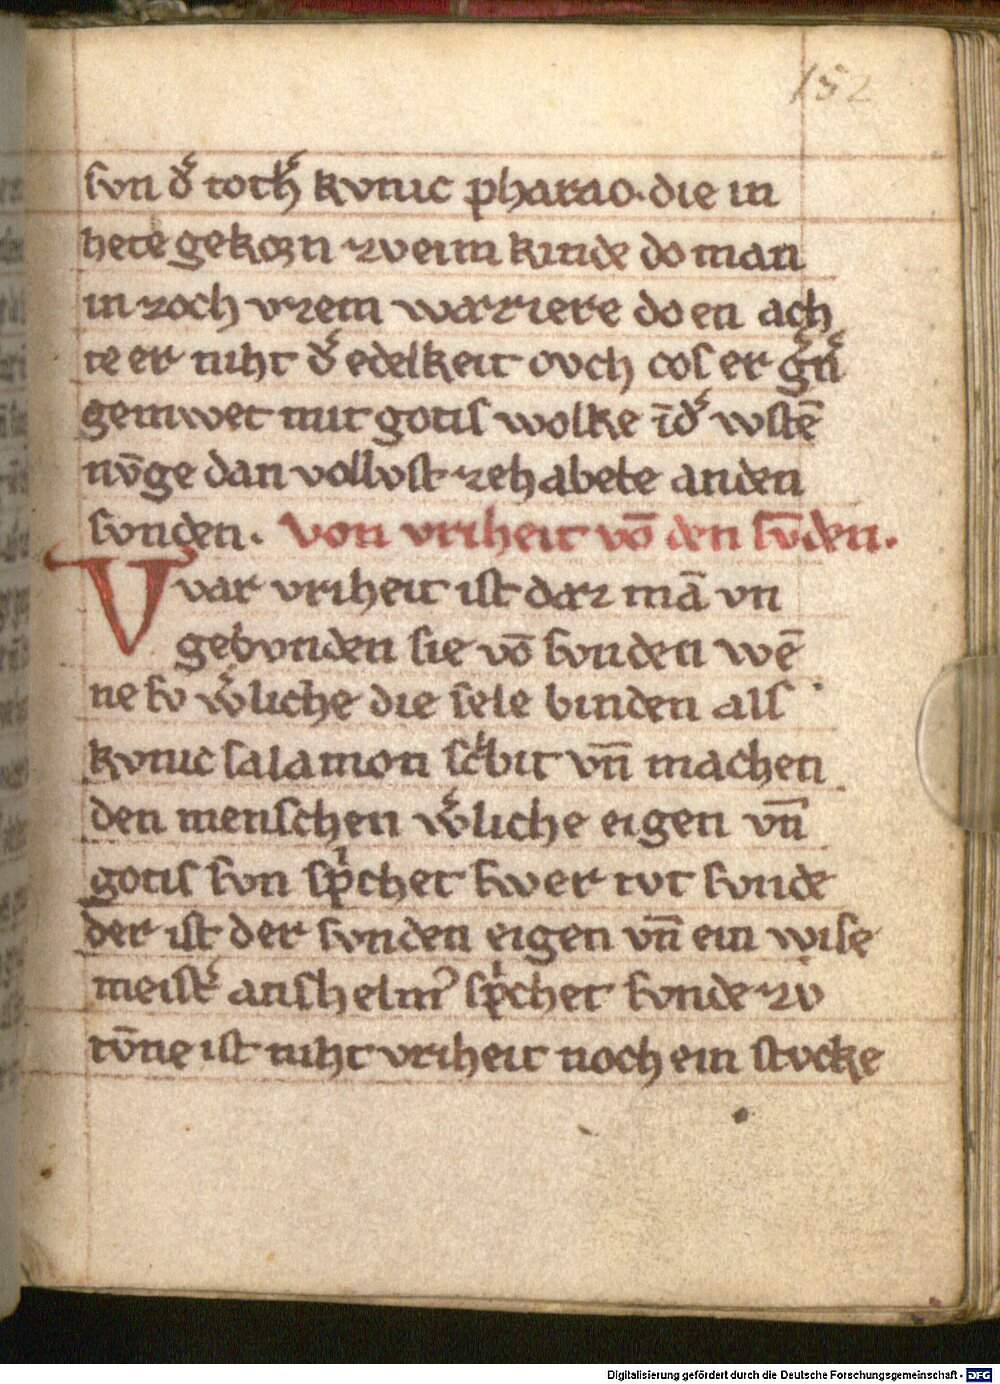 152
svn dˀ tochˀ kvnic pharao. die in
hete gekorn zveim kinde do man
in zoch vzem wazziere do en ach
te er niht dˀ edelkeit ovch cos er gˀnˀ
gemwet mit gotis wolke īdˀ wstē
nv̄ge dan vollvst zehabete anden
svnden. von vriheit vō den sv̄den.
Vvar vriheit ist daz mā vn
gebvnden sie vō svnden wē
ne sv wˀliche die sele binden als
kvnic salamon scˀbit vn̄ machen
den menschen wˀliche eigen vn̄
gotis svn spͥchet swer tvt svnde
der ist der svnden eigen vn̄ ein wise
meistˀ anshelmꝰ spͥchet svnde zv
tv̄ne ist niht vriheit noch ein stvcke
Digitalisierung gefördert durch die Deutsche Forschungsgemeinschaft - DFG